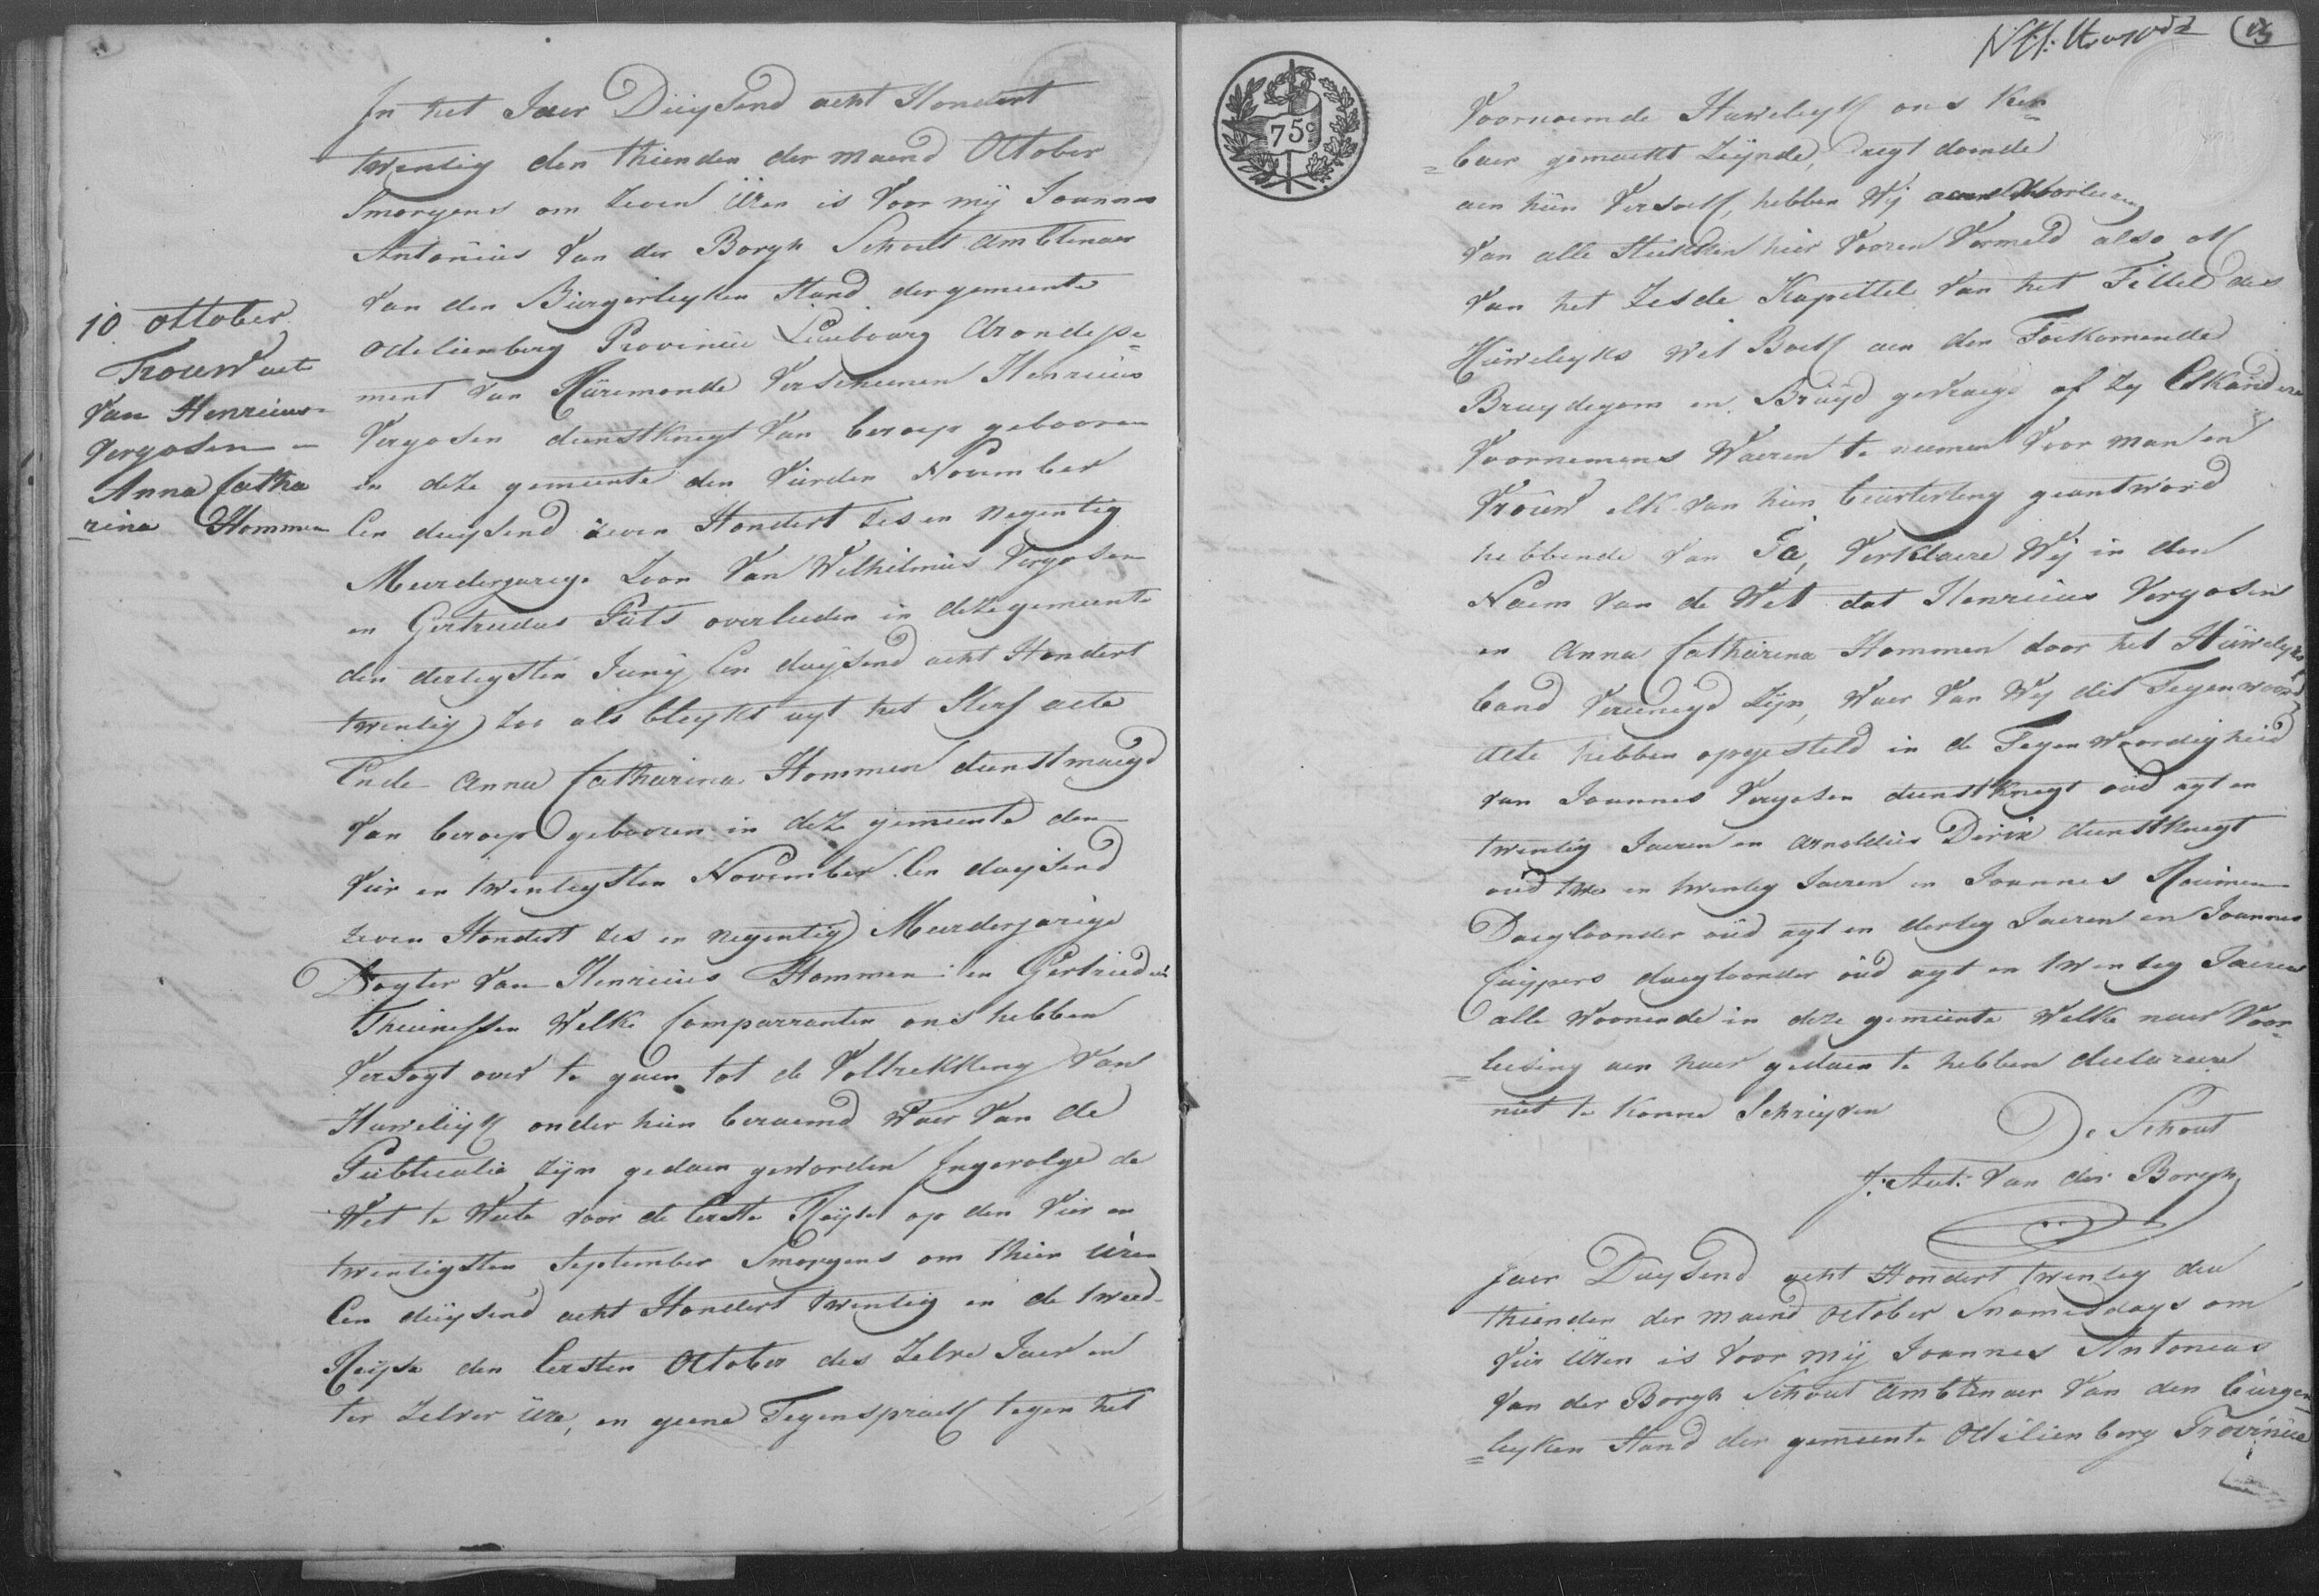 10 Ottober
Trouw acte
Van Henricus
Vergosen en
Anna Catha
rina Hommen
In het Jaer Duysend acht Hondert
twentig den thienden der maend Ottober
Smorgens om Zeven Uren is Voor mij Joannes
Antonius Van der Borgh Schout Ambtenaer
Van den Burgerleyken Stand der gemeente
Odelienberg Provincie Limbourg Arondisse
ment Van Rüremonde Verscheenen Henricus
Vergosen dienstknegt Van beroep gebooren
in deze gemeente den Vierden November
Een duysend zeven Hondert zes en negentig
Meerderjarige Zoon Van Wilhelmus Vergosen
en Gertrudes Puts overleeden in deze gemeente
den dertigsten Junij Een duysend acht Hondert
twentig zoo als bleykt uyt het Sterf acte
Ende Anna Catharina Hommen dienstmaegd
Van beroep gebooren in deze gemeente den
Vier en twentigsten November Een duysend
zeven Hondert zes en negentig Meerderjarige
Dogter Van Henricus Hommen en Gertrudis
Theunessen Welke Comparranten ons hebben
Versogt over te gaen tot de Voltrekking Van
Huweliyk onder hun beraemd Waer Van de
Publicatie zijn gedaen geworden Ingevolge de
Wet te Weete voor de Eerste Reijse op den Vier en
twentigsten September Smorgens om thien Uren
Een duysend acht Hondert twentig en de tweed
Reijse den Eersten Ottober des Zelve Jaer en
ter Zelver Ure, en geene Tegenspraek tegen het
75c
Voornoemde Huweleyk ons ken
baer gemaekt Zijnde, regt doende
aen hun Versoek, hebben Wij
Van alle Stukken hier Vooren Vermeld also ok
Van het Zesde Kapittel Van het Tittel des
Huweleyks Wet Boek aen den Toekomende
Bruydegom en Bruyd gevraegt of zy Elkandere
Voornemens Waeren te neemen Voor man en
Vrouw elk van hun beurterling geantword
hebbende Van Ja, Verklaere Wij in den
Naem Van de Wet dat Henricus Vergosen
en Anna Catharina Hommen door het Huwelyks
band Vereenegd Zijn, Waer Van Wy dit Tegenwoord
acte hebben opgesteld in de Tegenwoordigheid
van Joannes Vergosen dienstknegt oud agt en
twentig Jaeren en Arnoldus Dirix dienstknegt
oud twe en twentig Jaeren en Joannes
Dagloonder oud agt en dertig Jaeren en Joannes
Cuypers dagloonder oud agt en twentig Jaeren
alle Woonende in deze gemeente Welke naer Voor
leesing aen haer gedaen te hebben declareere
niet te konne Schrieyven
De Schout
J: Ant: Van der Borgh
Jaer Duysend acht Hondert twentig den
thienden der maend October Snamiddags om
Vier Uren is Voor mij Joannes Antonius
Van der Borgh Schout Ambtenaer Van den burger
leyken Stand der gemeente Odilienberg Provincie